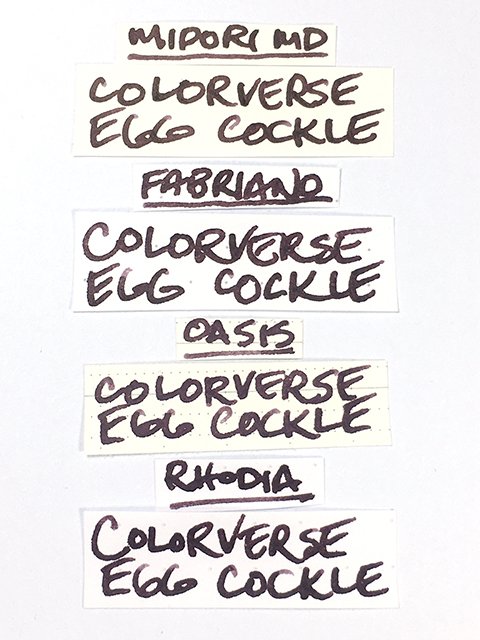 MIDORI MD
COLORVERSE
EGG COCKLE
FABRIANO
COLORVERSE
EGG COCKLE
OASIS
COLORVERSE
EGG COCKLE
RHODIA
COLORVERSE
EGG COCKLE